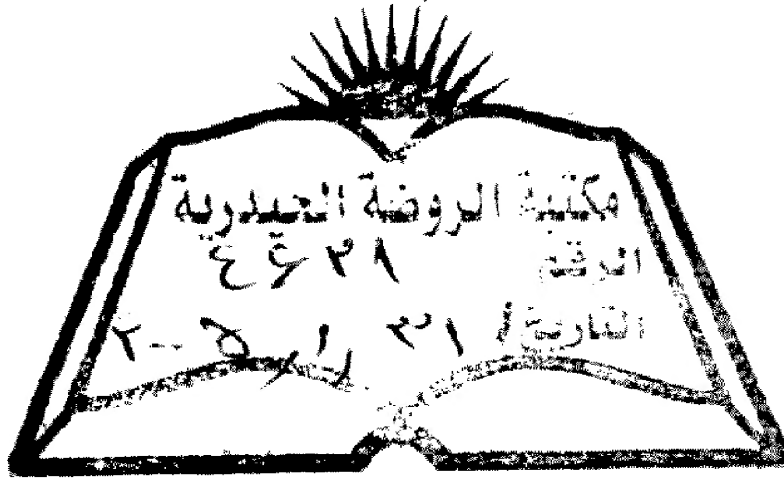 مكتبة الروضة الحيدرية
الرقم ٤٤٢٨
التاريخ ٣١